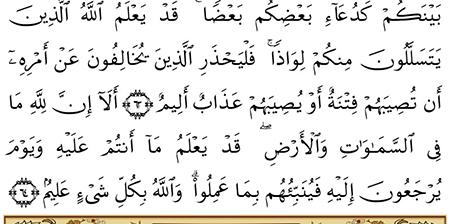 بَيْنَكُمْ كَدُعَآءِ بَعْضِكُم بَعْضًا ۚ قَدْ يَعْلَمُ ٱللَّهُ ٱلَّذِينَ
يَتَسَلَّلُونَ مِنكُمْ لِوَاذًا ۚ فَلْيَحْذَرِ ٱلَّذِينَ يُخَالِفُونَ عَنْ أَمْرِهِۦٓ
أَن تُصِيبَهُمْ فِتْنَةٌ أَوْ يُصِيبَهُمْ عَذَابٌ أَلِيمٌ ۝٦٣ أَلَآ إِنَّ لِلَّهِ مَا
فِى ٱلسَّمَـٰوَٰتِ وَٱلْأَرْضِ ۖ قَدْ يَعْلَمُ مَآ أَنتُمْ عَلَيْهِ وَيَوْمَ
يُرْجَعُونَ إِلَيْهِ فَيُنَبِّئُهُم بِمَا عَمِلُوا۟ ۗ وَٱللَّهُ بِكُلِّ شَىْءٍ عَلِيمٌۢ ۝٦٤